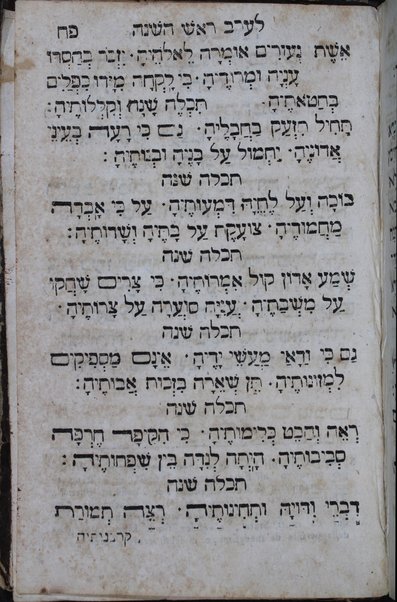 לערב ראש השנה פח
אֵשֶׁת נְעוּרִים אוֹמְרָה לֵאלֹהֶיהָ· יִזְכֹּר בְּחַסְדּוֹ
עָנְיָהּ וּמְרוּדֶיהָ· כִּי לָקְחָה מִיָּדוֹ כִּפְלַיִם
בְּחַטֹּאתֶיהָ· תִּכְלֶה שָׁנָה וְקִלְלוֹתֶיהָ:
תָּחִיל תִּזְעַק בַּחֲבָלֶיהָ· גַם כִּי רָעָה בְּעֵינֵי
אֲדוֹנֶיהָ· יַחְמוֹל עַל בָּנֶיהָ וּבְנוֹתֶיהָ:
תכלה שנה
בּוֹכָה וְעַל לֶחֱיָהּ דִּמְעוֹתֶיהָ· עַל כִּי אָבְדָה
מַחֲמוּדֶיהָ· צוֹעֶקֶת עַל בָּתֶּיהָ וְשָׂדוֹתֶיהָ:
תכלה שנה
שְׁמַע אָדוֹן קוֹל אִמְרוֹתֶיהָ· כִּי צָרִים שָׂחֲקוּ
עַל מִשְׁבַּתֶּיהָ· עֲנִיָּה סוֹעֲרָה עַל צָרוֹתֶיהָ·
תכלה שנה
גַם כִּי וַדָּאי מַעֲשֵׂי יָדֶיהָ· אֵינָם מַסְפִּיקִים
לִמְזוֹנוֹתֶיהָ· תֵּן שְׁאֵרָהּ בִּזְכוּת אֲבוֹתֶיהָ:
תכלה שנה
רְאֵה וְהַבֵּט כְּלִימוֹתֶיהָ· כִּי הִקִּיפָהּ חֶרְפָּה
סְבִיבוֹתֶיהָ· הָיְתָה לְנִדָּה בֵּין שִׁפְחוֹתֶיהָ:
תכלה שנה
דִּבְרֵי וִדּוּיָהּ וּתְחִינּוֹתֶיהָ· רְצֵה תְּמוּרַת
קרבנותיה